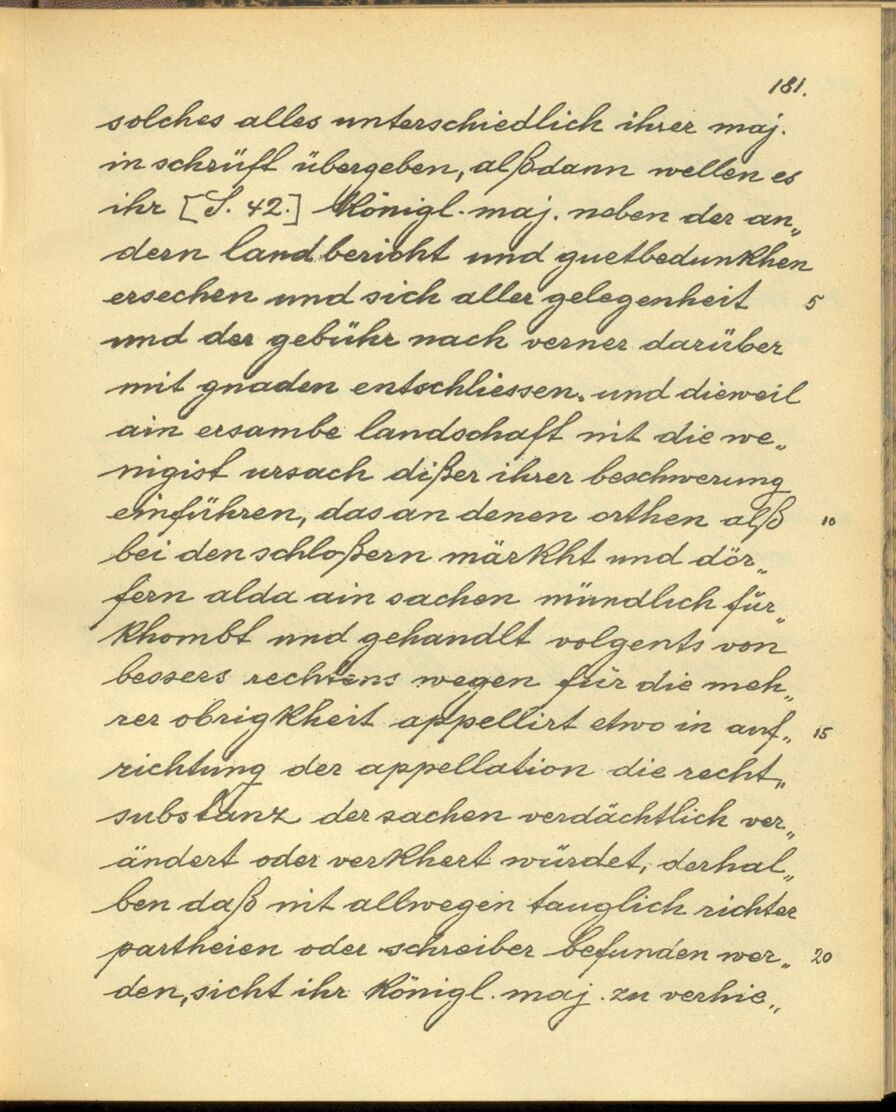 181.
solches alles unterschiedlich ihrer maj.
in schrüft übergeben, alßdann wellen es
ihr [S. 42.] Königl. maj. neben der an„
dern landbericht und guetbedunkhen
ersechen und sich aller gelegenheit 5
und der gebühr nach verner darüber
mit gnaden entschliessen. und dieweil
ain ersambe landschaft nit die we„
nigist ursach dißer ihrer beschwerung
einführen, das an denen orthen alß 10
bei den schloßern märkht und dör„
fern alda ain sachen mündlich für„
khombt und gehandlt volgents von
bessers rechtens wegen für die meh„
rer obrigkheit appellirt etwo in auf„ 15
richtung der appellation die recht„
substanz der sachen verdächtlich ver„
ändert oder verkhert würdet, derhal„
ben daß nit allwegen tauglich richter
partheien oder schreiber befunden wer„ 20
den, sicht ihr Königl. maj. zu verhie„